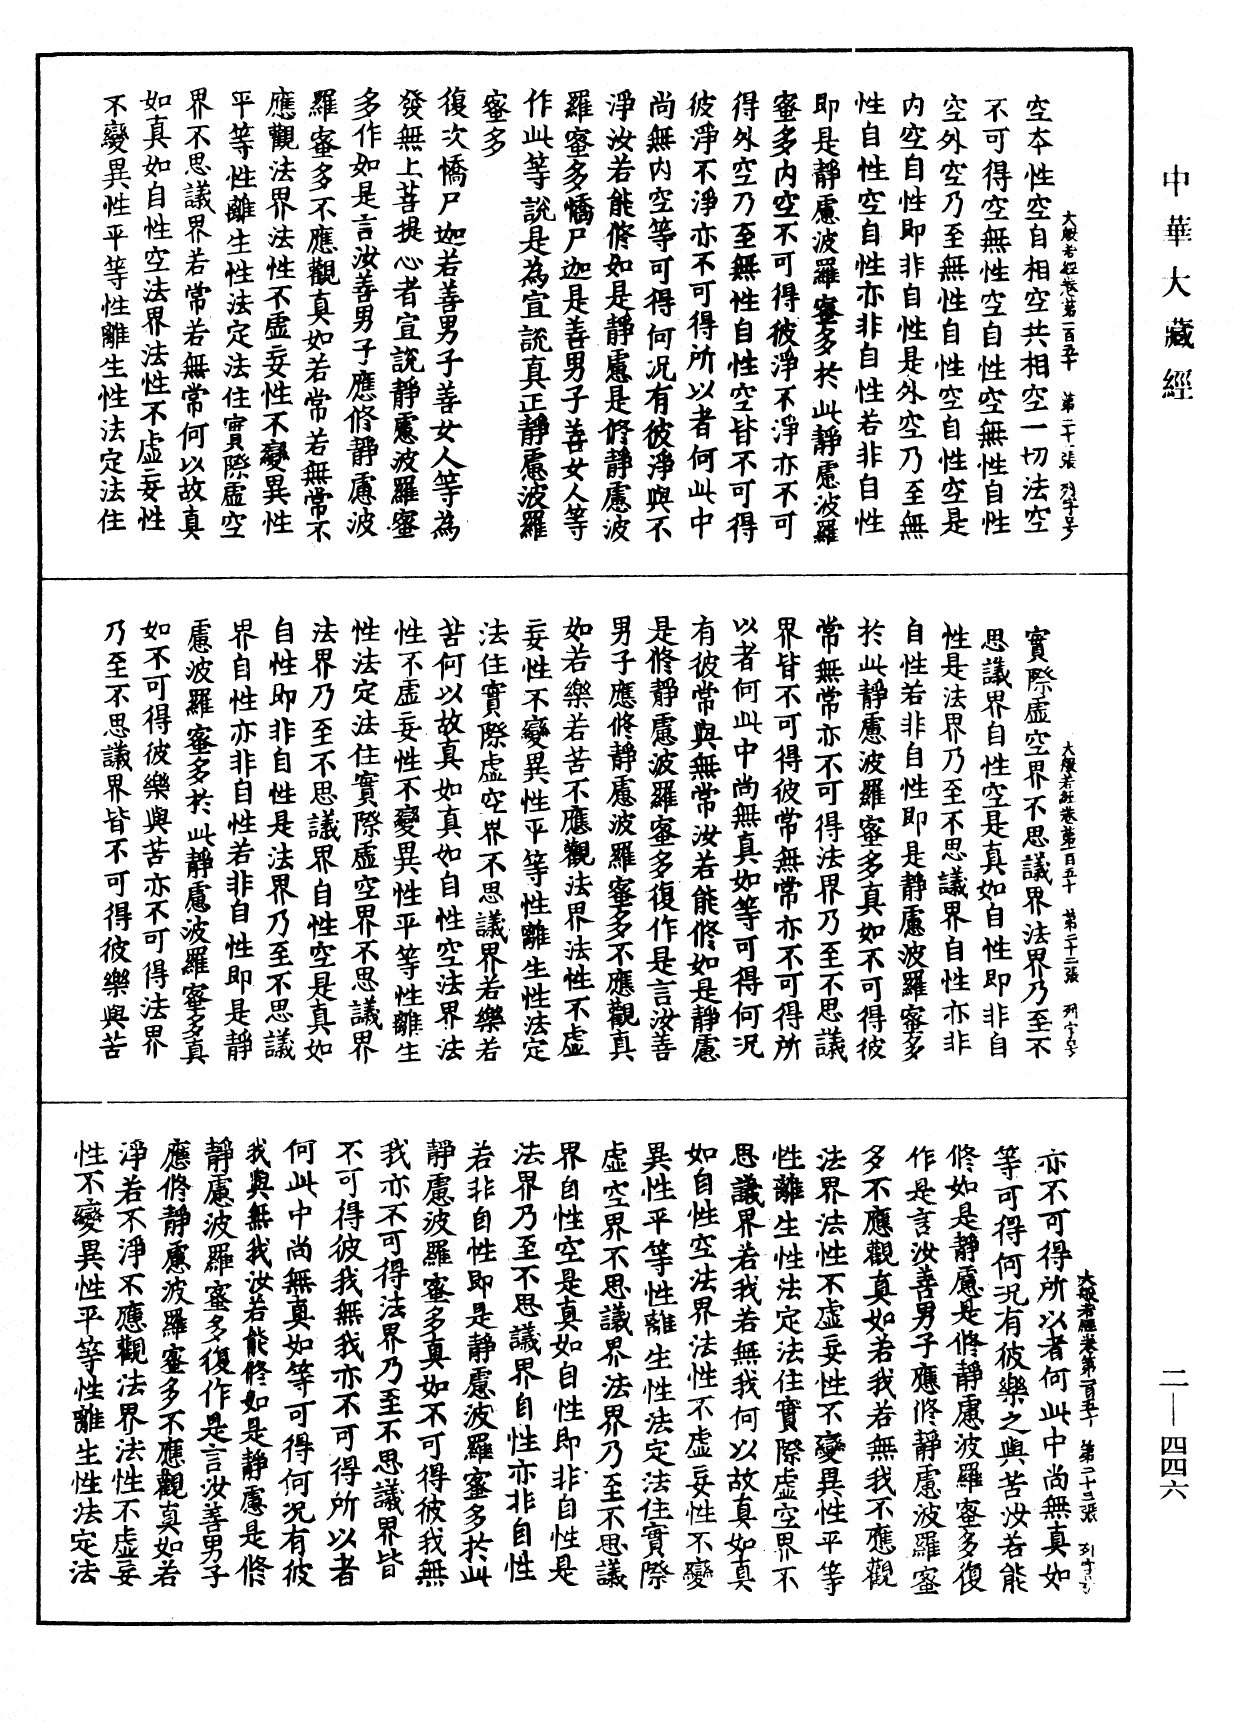 中華大藏經
大般若經卷第一百五十　第二十張　列字号
空本性空自相空共相空一切法空
不可得空無性空自性空無性自性
空外空乃至無性自性空自性空是
内空自性即非自性是外空乃至無
性自性空自性亦非自性若非自性
即是靜慮波羅蜜多於此靜慮波羅
蜜多内空不可得彼淨不淨亦不可
得外空乃至無性自性空皆不可得
彼淨不淨亦不可得所以者何此中
尚無内空等可得何況有彼淨與不
淨汝若能修如是靜慮是修靜慮波
羅蜜多憍尸迦是善男子善女人等
作此等說是為宣說真正靜慮波羅
蜜多
復次憍尸迦若善男子善女人等為
發無上菩提心者宣說靜慮波羅蜜
多作如是言汝善男子應修靜慮波
羅蜜多不應觀真如若常若無常不
應觀法界法性不虛妄性不變異性
平等性離生性法定法住實際虛空
界不思議界若常若無常何以故真
如真如自性空法界法性不虛妄性
不變異性平等性離生性法定法住
大般若經卷第一百五十　第二十二張　列字号
實際虛空界不思議界法界乃至不
思議界自性空是真如自性即非自
性是法界乃至不思議界自性亦非
自性若非自性即是靜慮波羅蜜多
於此靜慮波羅蜜多真如不可得彼
常無常亦不可得法界乃至不思議
界皆不可得彼常無常亦不可得所
以者何此中尚無真如等可得何況
有彼常與無常汝若能修如是靜慮
是修靜慮波羅蜜多復作是言汝善
男子應修靜慮波羅蜜多不應觀真
如若樂若苦不應觀法界法性不虛
妄性不變異性平等性離生性法定
法住實際虛空界不思議界若樂若
苦何以故真如真如自性空法界法
性不虛妄性不變異性平等性離生
性法定法住實際虛空界不思議界
法界乃至不思議界自性空是真如
自性即非自性是法界乃至不思議
界自性亦非自性若非自性即是靜
慮波羅蜜多於此靜慮波羅蜜多真
如不可得彼樂與苦亦不可得法界
乃至不思議界皆不可得彼樂與苦
大般若經卷第一百五十　第二十三張　列字号
亦不可得所以者何此中尚無真如
等可得何況有彼樂之與苦汝若能
修如是靜慮是修靜慮波羅蜜多復
作是言汝善男子應修靜慮波羅蜜
多不應觀真如若我若無我不應觀
法界法性不虛妄性不變異性平等
性離生性法定法住實際虛空界不
思議界若我若無我何以故真如真
如自性空法界法性不虛妄性不變
異性平等性離生性法定法住實際
虛空界不思議界法界乃至不思議
界自性空是真如自性即非自性是
法界乃至不思議界自性亦非自性
若非自性即是靜慮波羅蜜多於此
靜慮波羅蜜多真如不可得彼我無
我亦不可得法界乃至不思議界皆
不可得彼我無我亦不可得所以者
何此中尚無真如等可得何況有彼
我與無我汝若能修如是靜慮是修
靜慮波羅蜜多復作是言汝善男子
應修靜慮波羅蜜多不應觀真如若
淨若不淨不應觀法界法性不虛妄
性不變異性平等性離生性法定法
二—四四六